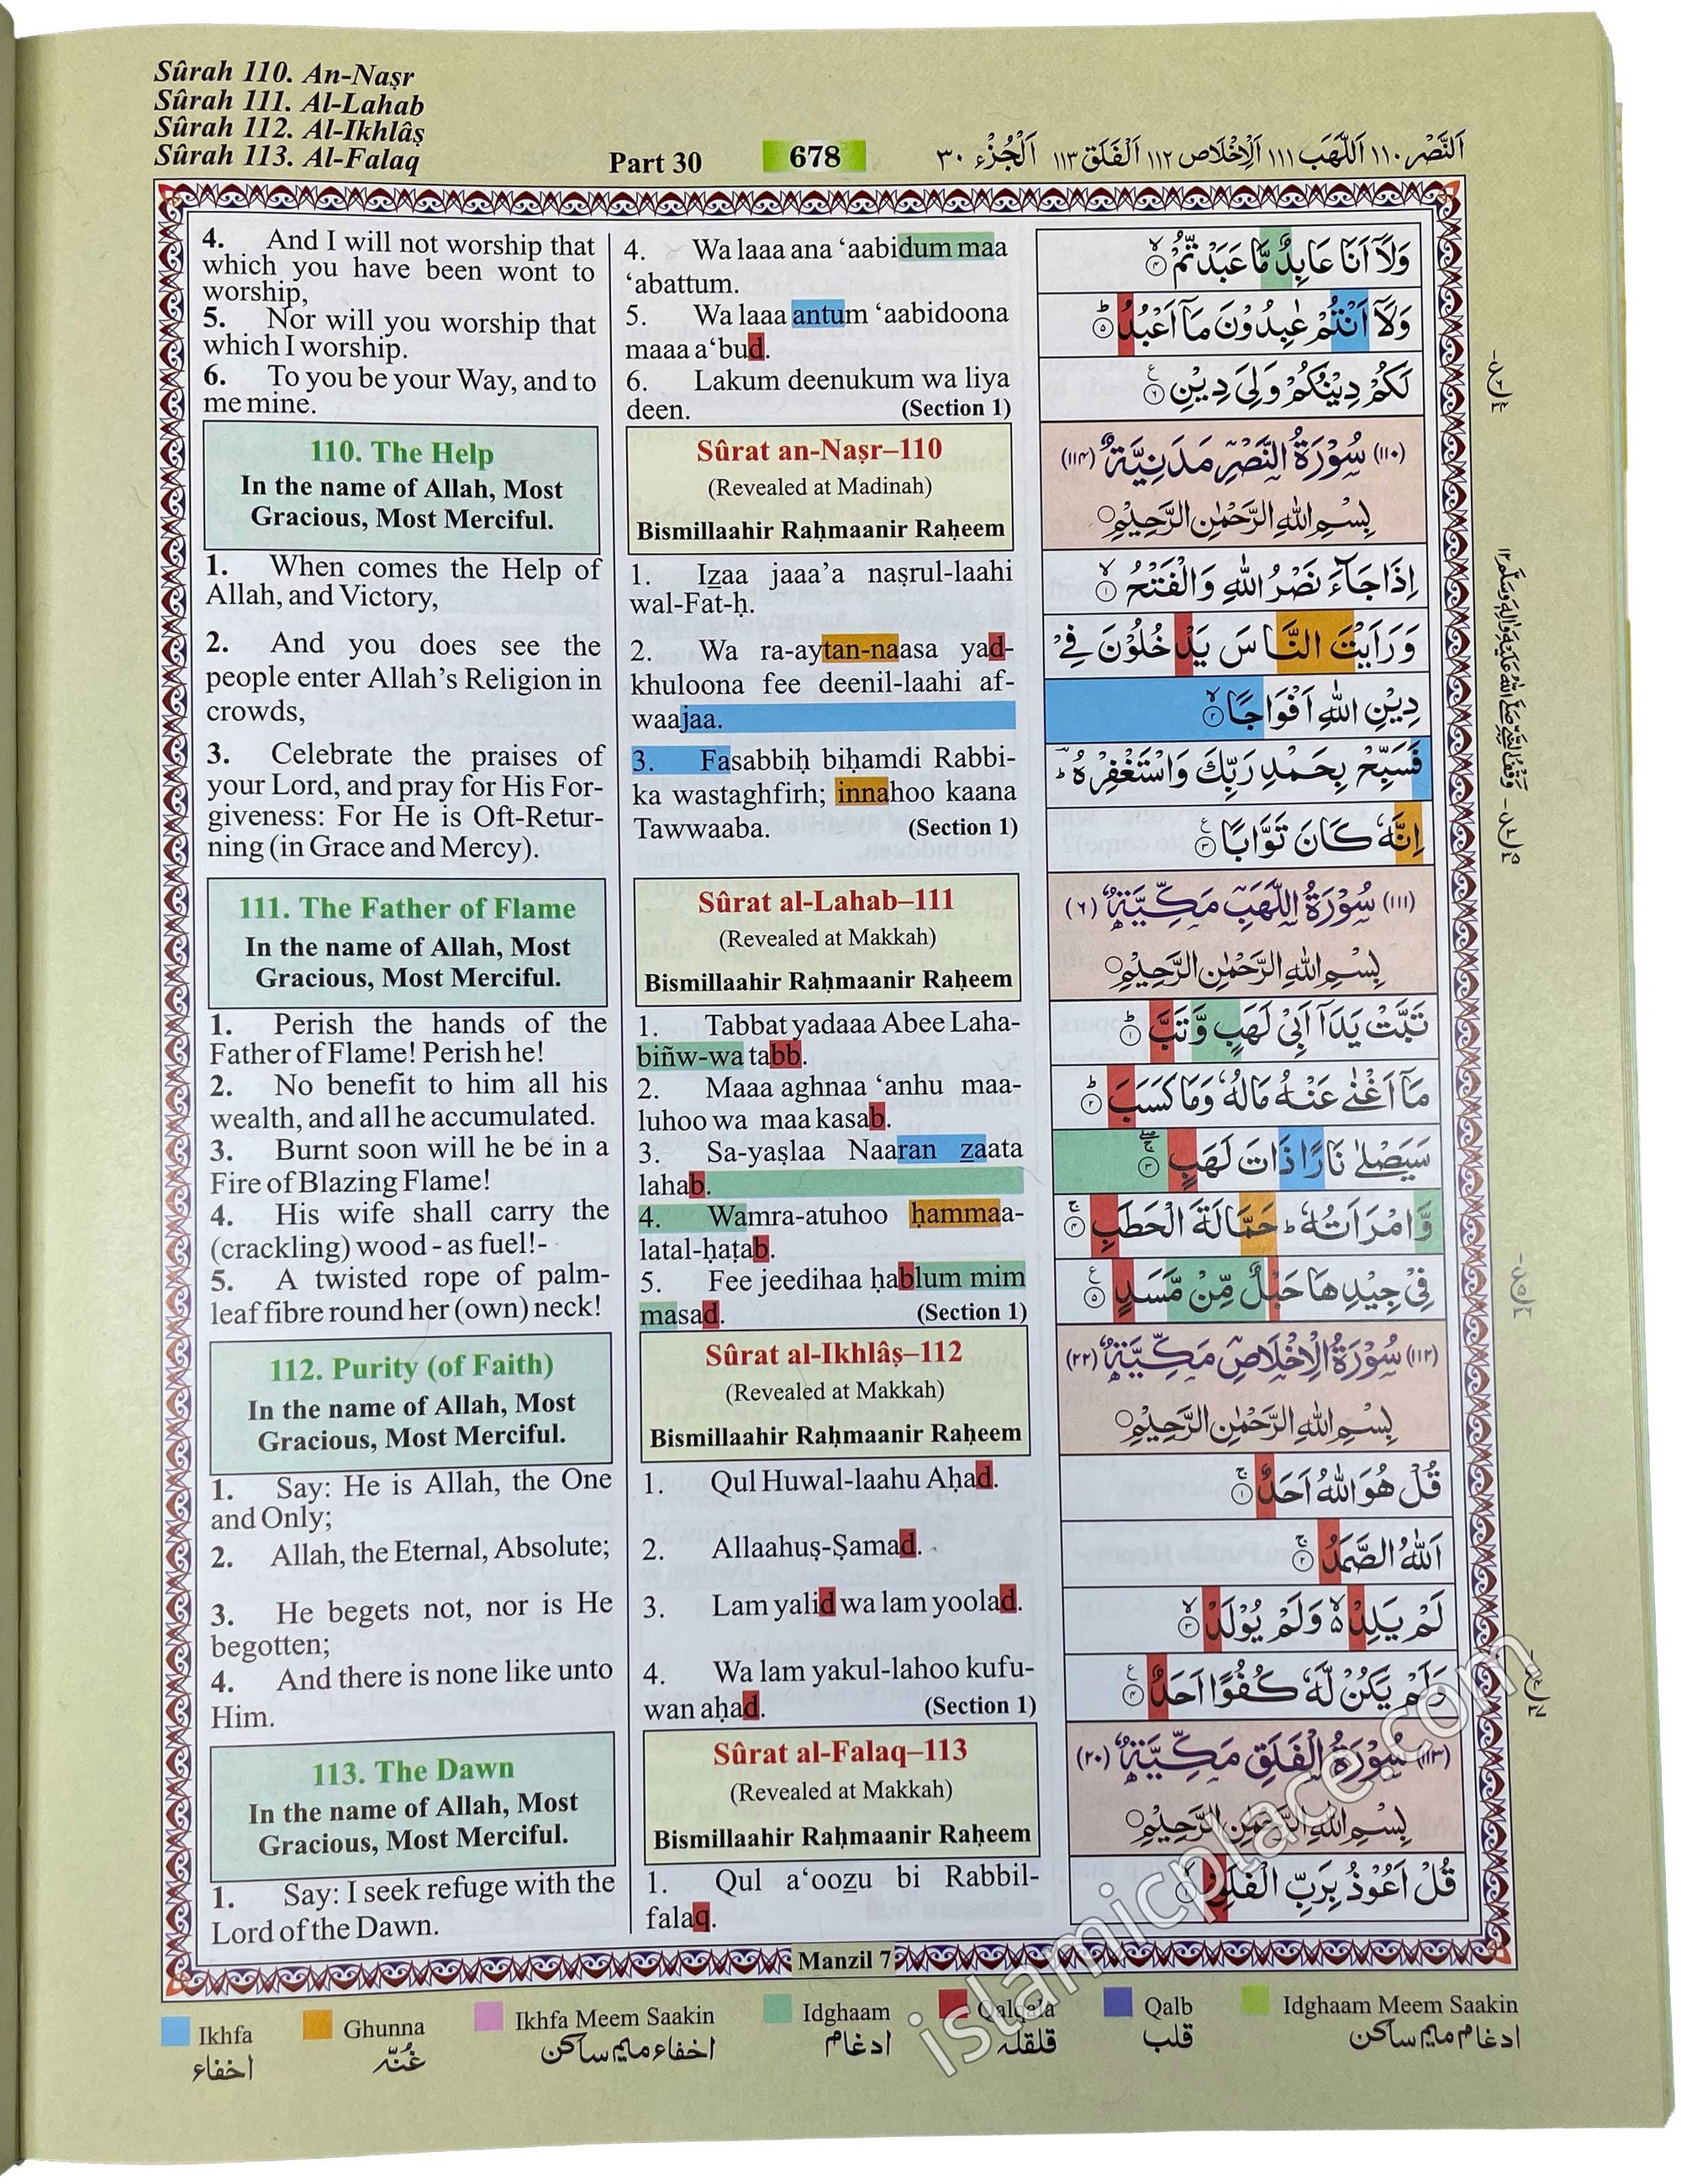 Sûrah 110. An-Naṣr
Sûrah 111. Al-Lahab
Sûrah 112. Al-Ikhlâṣ
Sûrah 113. Al-Falaq
Part 30
678
اَلنَّصْر ١١٠ اَللَّهَب ١١١ اَلْاِخْلَاص ١١٢ اَلْفَلَق ١١٣ اَلْجُزْء ٣٠
4. And I will not worship that
which you have been wont to
worship,
5. Nor will you worship that
which I worship.
6. To you be your Way, and to
me mine.
110. The Help
In the name of Allah, Most
Gracious, Most Merciful.
1. When comes the Help of
Allah, and Victory,
2. And you does see the
people enter Allah's Religion in
crowds,
3. Celebrate the praises of
your Lord, and pray for His For-
giveness: For He is Oft-Retur-
ning (in Grace and Mercy).
111. The Father of Flame
In the name of Allah, Most
Gracious, Most Merciful.
1. Perish the hands of the
Father of Flame! Perish he!
2. No benefit to him all his
wealth, and all he accumulated.
3. Burnt soon will he be in a
Fire of Blazing Flame!
4. His wife shall carry the
(crackling) wood - as fuel!-
5. A twisted rope of palm-
leaf fibre round her (own) neck!
112. Purity (of Faith)
In the name of Allah, Most
Gracious, Most Merciful.
1. Say: He is Allah, the One
and Only;
2. Allah, the Eternal, Absolute;
3. He begets not, nor is He
begotten;
4. And there is none like unto
Him.
113. The Dawn
In the name of Allah, Most
Gracious, Most Merciful.
1. Say: I seek refuge with the
Lord of the Dawn.
4. Wa laaa ana ‘aabidum maa
‘abattum.
5. Wa laaa antum ‘aabidoona
maaa a‘bud.
6. Lakum deenukum wa liya
deen. (Section 1)
Sûrat an-Naṣr–110
(Revealed at Madinah)
Bismillaahir Raḥmaanir Raḥeem
1. Izaa jaaa’a naṣrul-laahi
wal-Fat-ḥ.
2. Wa ra-aytan-naasa yad-
khuloona fee deenil-laahi af-
waajaa.
3. Fasabbiḥ biḥamdi Rabbi-
ka wastaghfirh; innahoo kaana
Tawwaaba. (Section 1)
Sûrat al-Lahab–111
(Revealed at Makkah)
Bismillaahir Raḥmaanir Raḥeem
1. Tabbat yadaaa Abee Laha-
biñw-wa tabb.
2. Maaa aghnaa ‘anhu maa-
luhoo wa maa kasab.
3. Sa-yaṣlaa Naaran zaata
lahab.
4. Wamra-atuhoo ḥammaa-
latal-ḥaṭab.
5. Fee jeedihaa ḥablum mim
masad. (Section 1)
Sûrat al-Ikhlâṣ–112
(Revealed at Makkah)
Bismillaahir Raḥmaanir Raḥeem
1. Qul Huwal-laahu Aḥad.
2. Allaahuṣ-Ṣamad.
3. Lam yalid wa lam yoolad.
4. Wa lam yakul-lahoo kufu-
wan aḥad. (Section 1)
Sûrat al-Falaq–113
(Revealed at Makkah)
Bismillaahir Raḥmaanir Raḥeem
1. Qul a‘oozu bi Rabbil-
falaq.
وَلَاۤ اَنَا عَابِدٌ مَّا عَبَدْتُّمْ ۙ ٤
وَلَاۤ اَنْتُمْ عٰبِدُوْنَ مَاۤ اَعْبُدُ ؕ ٥
لَكُمْ دِيْنُكُمْ وَلِىَ دِيْنِ ٦
(١١٠) سُوْرَةُ النَّصْرِ مَدَنِيَّةٌ (١١٤)
بِسْمِ اللّٰهِ الرَّحْمٰنِ الرَّحِيْمِ
اِذَا جَآءَ نَصْرُ اللّٰهِ وَالْفَتْحُ ۙ ١
وَرَاَيْتَ النَّاسَ يَدْخُلُوْنَ فِىْ
دِيْنِ اللّٰهِ اَفْوَاجًا ۙ ٢
فَسَبِّحْ بِحَمْدِ رَبِّكَ وَاسْتَغْفِرْهُ ؕ
اِنَّهٗ كَانَ تَوَّابًا ٣
(١١١) سُوْرَةُ اللَّهَبِ مَكِّيَّةٌ (٦)
بِسْمِ اللّٰهِ الرَّحْمٰنِ الرَّحِيْمِ
تَبَّتْ يَدَاۤ اَبِىْ لَهَبٍ وَّتَبَّ ؕ ١
مَاۤ اَغْنٰى عَنْهُ مَالُهٗ وَمَا كَسَبَ ؕ ٢
سَيَصْلٰى نَارًا ذَاتَ لَهَبٍ ۚۖ ٣
وَّامْرَاَتُهٗ ؕ حَمَّالَةَ الْحَطَبِ ۚ ٤
فِىْ جِيْدِهَا حَبْلٌ مِّنْ مَّسَدٍ ٥
(١١٢) سُوْرَةُ الْاِخْلَاصِ مَكِّيَّةٌ (٢٢)
بِسْمِ اللّٰهِ الرَّحْمٰنِ الرَّحِيْمِ
قُلْ هُوَ اللّٰهُ اَحَدٌ ۚ ١
اَللّٰهُ الصَّمَدُ ۚ ٢
لَمْ يَلِدْ ۙ وَلَمْ يُوْلَدْ ۙ ٣
وَلَمْ يَكُنْ لَّهٗ كُفُوًا اَحَدٌ ٤
(١١٣) سُوْرَةُ الْفَلَقِ مَكِّيَّةٌ (٢٠)
بِسْمِ اللّٰهِ الرَّحْمٰنِ الرَّحِيْمِ
قُلْ اَعُوْذُ بِرَبِّ الْفَلَقِ ۙ ١
Manzil 7
Ikhfa
اخفاء
Ghunna
غُنّه
Ikhfa Meem Saakin
اخفاء میم ساکن
Idghaam
ادغام
Qalqala
قلقلہ
Qalb
قلب
Idghaam Meem Saakin
ادغام میم ساکن
islamicplace.com